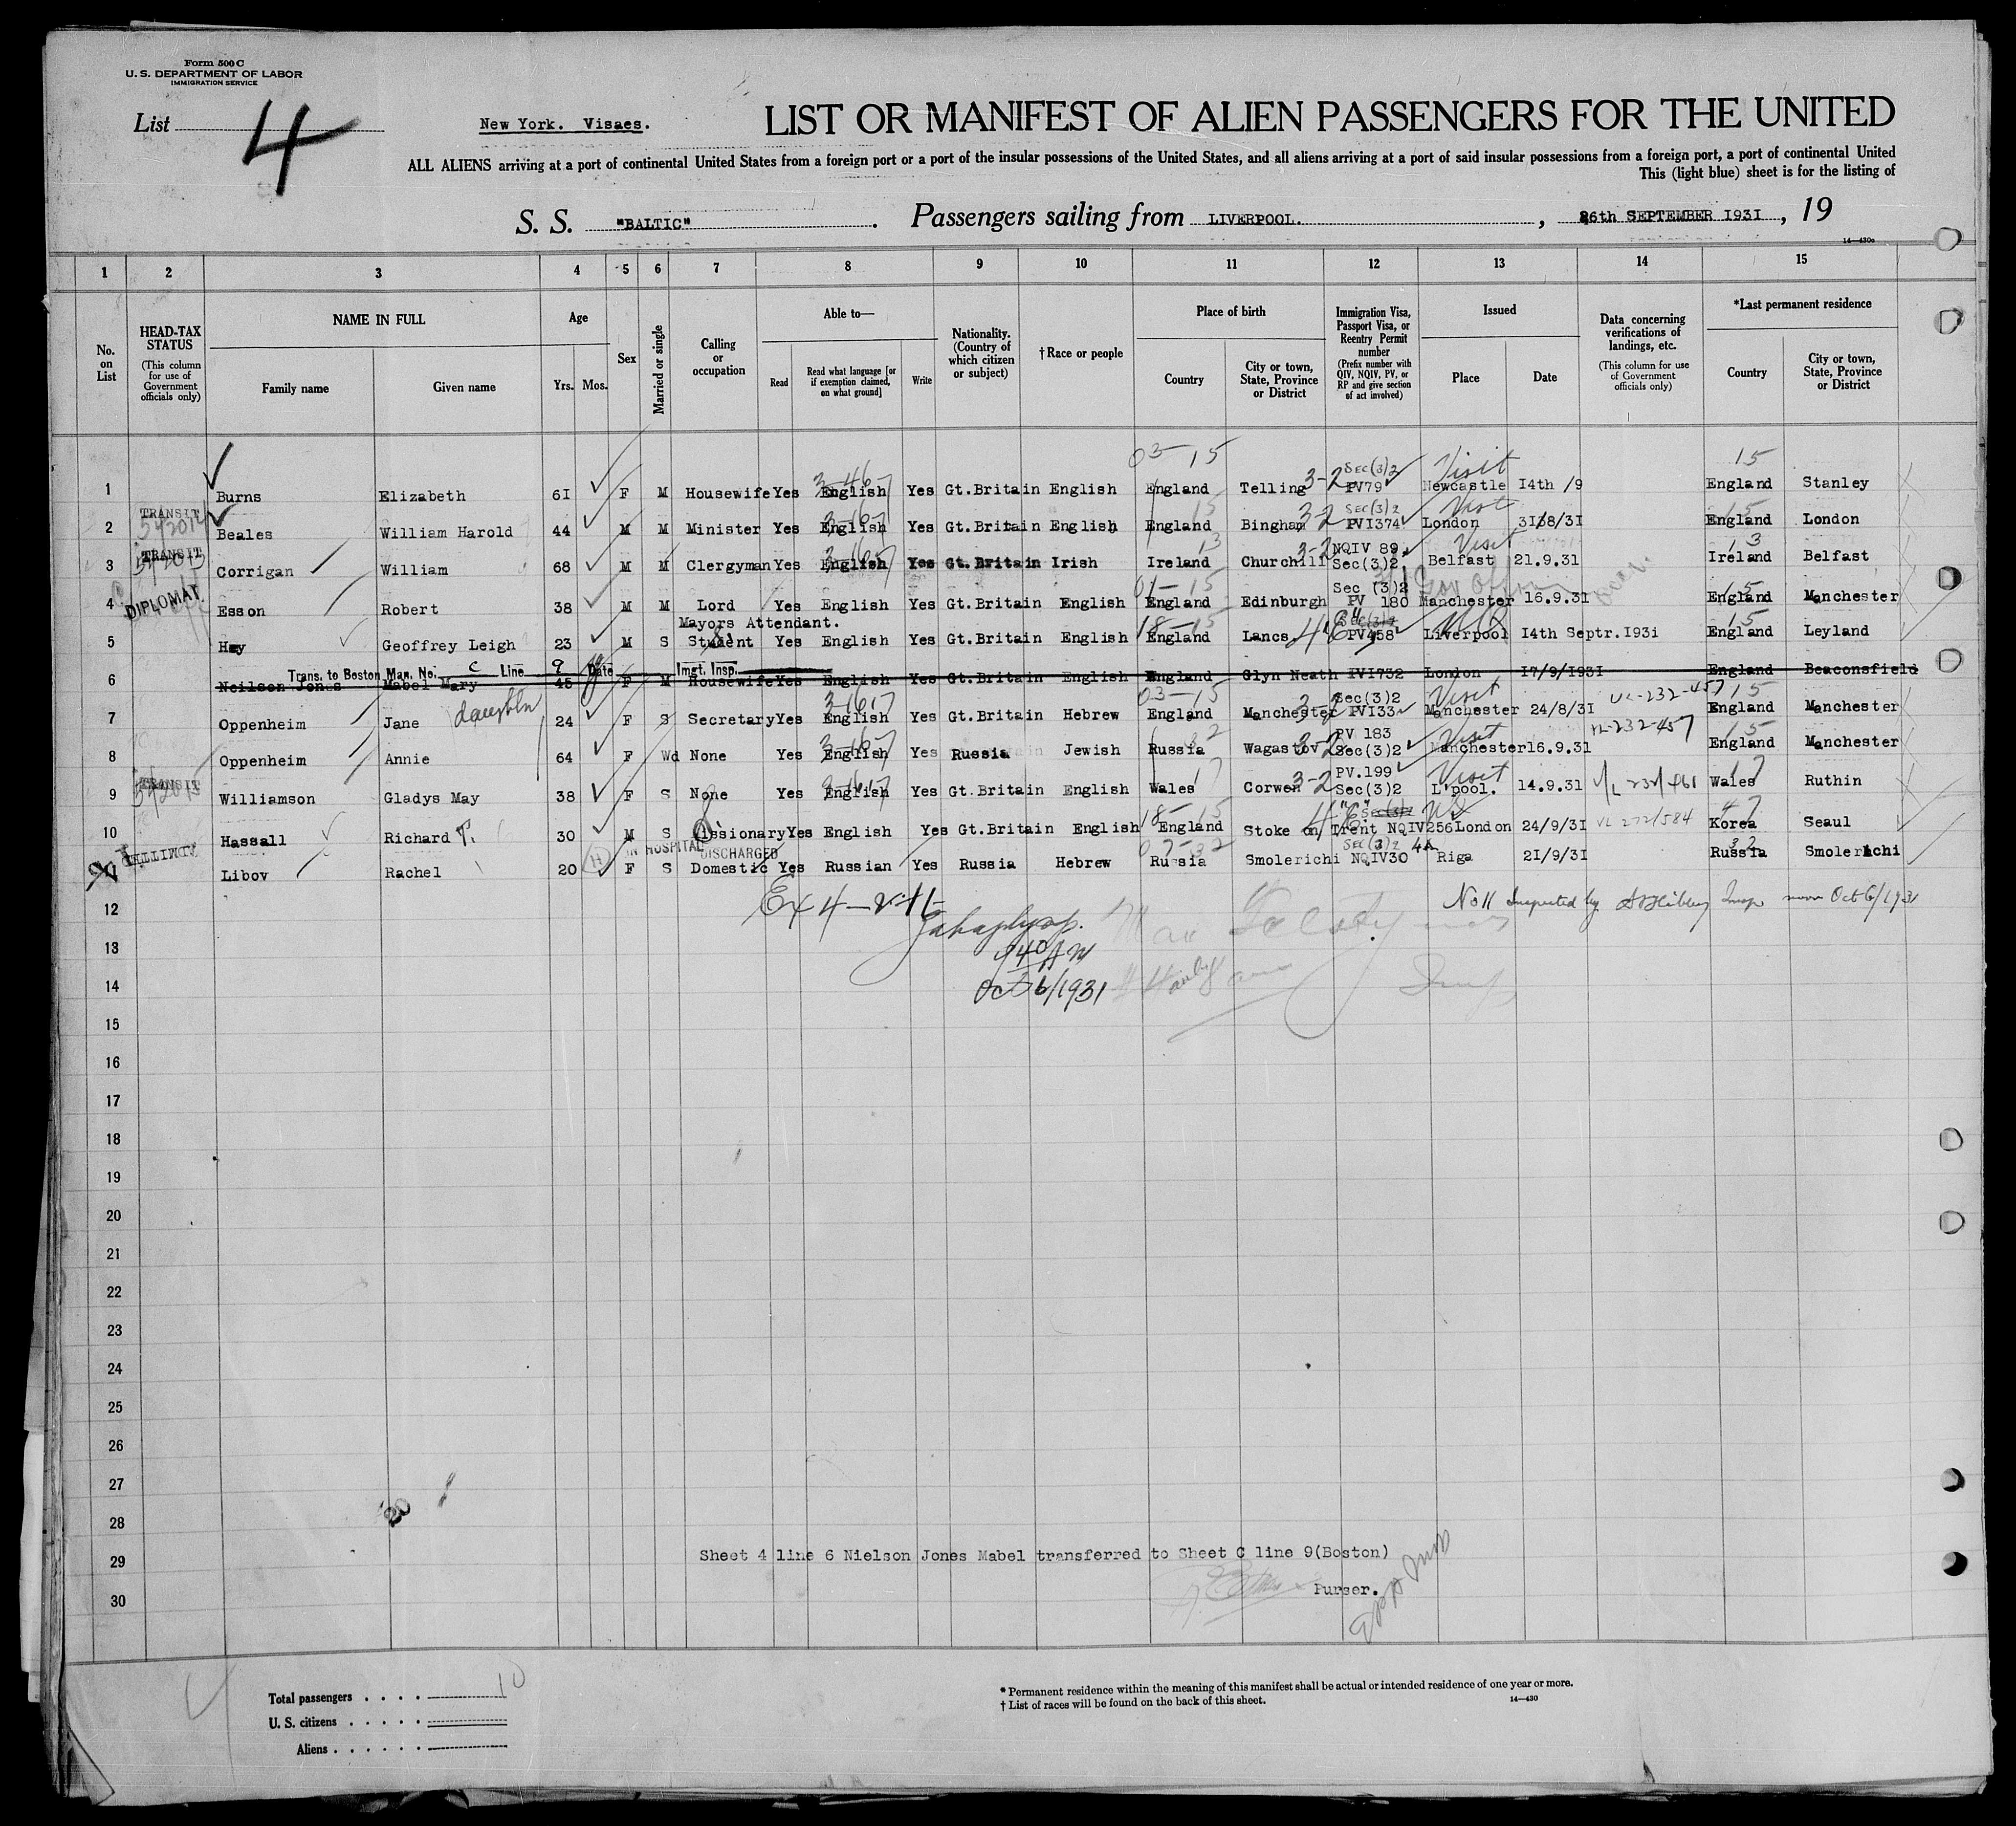 Form 500 C
U. S. DEPARTMENT OF LABOR
IMMIGRATION SERVICE
List 4
New York. Visaes.
LIST OR MANIFEST OF ALIEN PASSENGERS FOR THE UNITED
ALL ALIENS arriving at a port of continental United States from a foreign port or a port of the insular possessions of the United States, and all aliens arriving at a port of said insular possessions from a foreign port, a port of continental United
This (light blue) sheet is for the listing of
S. S. "BALTIC". Passengers sailing from LIVERPOOL., 26th SEPTEMBER I93I, 19
14—430c
1 2 3 4 5 6 7 8 9 10 11 12 13 14 15
No. on List
HEAD-TAX STATUS (This column for use of Government officials only)
NAME IN FULL Family name Given name
Age Yrs. Mos.
Sex
Married or single
Calling or occupation
Able to— Read Read what language [or if exemption claimed, on what ground] Write
Nationality. (Country of which citizen or subject)
†Race or people
Place of birth Country City or town, State, Province or District
Immigration Visa, Passport Visa, or Reentry Permit number (Prefix number with QIV, NQIV, PV, or RP and give section of act involved)
Issued Place Date
Data concerning verifications of landings, etc. (This column for use of Government officials only)
*Last permanent residence Country City or town, State, Province or District
03-15 Sec(3)2 Visit 15
1 Burns Elizabeth 6I F M Housewife Yes English Yes Gt.Britain English England Telling 3-2 PV79 Newcastle I4th /9 England Stanley
TRANSIT 15 Sec(3)2 Visit 15
2 Beales William Harold 44 M M Minister Yes English Yes Gt.Britain English England Bingham 3-2 PVI374 London 3I/8/3I England London
TRANSIT 13 NQIV 89 Visit 13
3 Corrigan William 68 M M Clergyman Yes English Yes Gt.Britain Irish Ireland Churchill 3-2 Sec(3)2 Belfast 21.9.31 Ireland Belfast
DIPLOMAT 01-15 Sec (3)2 Gov Off 15
4 Esson Robert 38 M M Lord Yes English Yes Gt.Britain English England Edinburgh PV 180 Manchester 16.9.31 England Manchester
Mayors Attendant.
18-15 15
5 Hay Geoffrey Leigh 23 M S Student Yes English Yes Gt.Britain English England Lancs 4"E" PV458 Liverpool I4th Septr.I93i England Leyland
Trans. to Boston Man. No. C Line 9 Date Imgt. Insp.
6 Neilson Jones Mabel Mary 45 F M Housewife Yes English Yes Gt.Britain English England Glyn Neath PVI732 London I7/9/I93I England Beaconsfield
03-15 Sec(3)2 Visit 15
7 Oppenheim Jane daughter 24 F S Secretary Yes English Yes Gt.Britain Hebrew England Manchester 3-2 PVI33 Manchester 24/8/3I VL-232-457 England Manchester
PV 183 Visit VL-232-457 15
8 Oppenheim Annie 64 F Wd None Yes English Yes Russia Jewish Russia Wagastov 3-2 Sec(3)2 Manchester 16.9.31 England Manchester
TRANSIT 17 PV.199 Visit 17
9 Williamson Gladys May 38 F S None Yes English Yes Gt.Britain English Wales Corwen 3-2 Sec(3)2 L'pool. 14.9.31 V/L 232/461 Wales Ruthin
18-15 4"E" 47
10 Hassall Richard P. 30 M S Missionary Yes English Yes Gt.Britain English England Stoke on Trent NQIV256 London 24/9/3I VL 272/584 Korea Seaul
IN HOSPITAL DISCHARGED Sec(3)2 4A 32
11 Libov Rachel 20 F S Domestic Yes Russian Yes Russia Hebrew Russia Smolerichi NQIV30 Riga 2I/9/3I Russia Smolerichi
12 No 11 Inspected by Insp noon Oct 6/1931
13
940 AM
14 Oct 6/1931
15
16
17
18
19
20
21
22
23
24
25
26
27
28
29 Sheet 4 line 6 Nielson Jones Mabel transferred to Sheet C line 9(Boston)
30 Purser.
Total passengers . . . . 10
U. S. citizens . . . . .
Aliens . . . . . .
* Permanent residence within the meaning of this manifest shall be actual or intended residence of one year or more.
† List of races will be found on the back of this sheet.
14—430